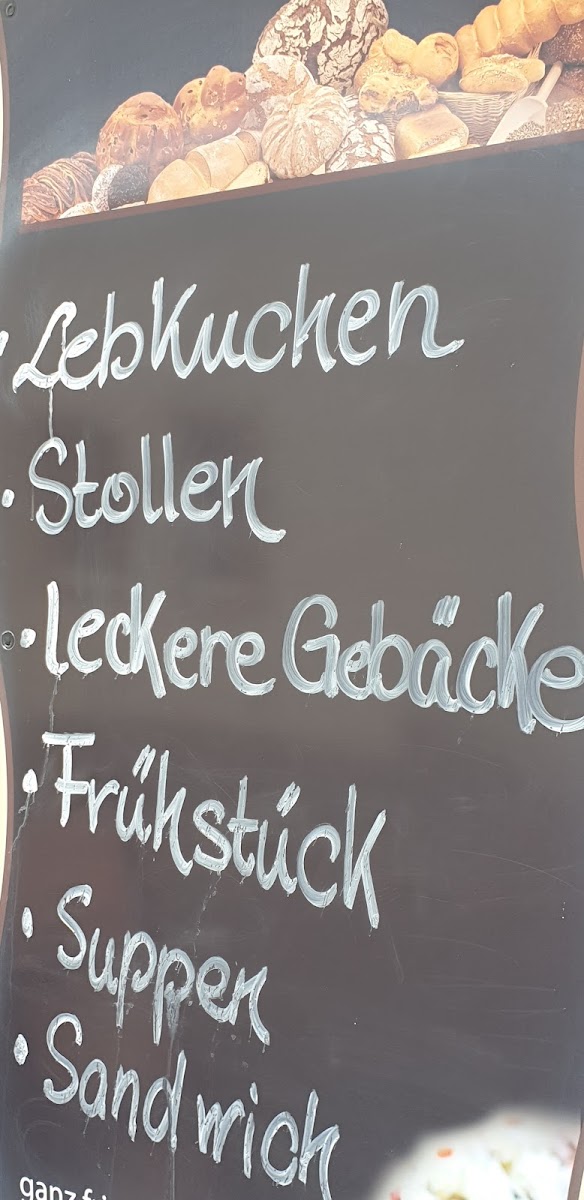 · Lebkuchen
· Stollen
· leckere Gebäcke
· Frühstück
· Suppen
· Sandwich
ganz